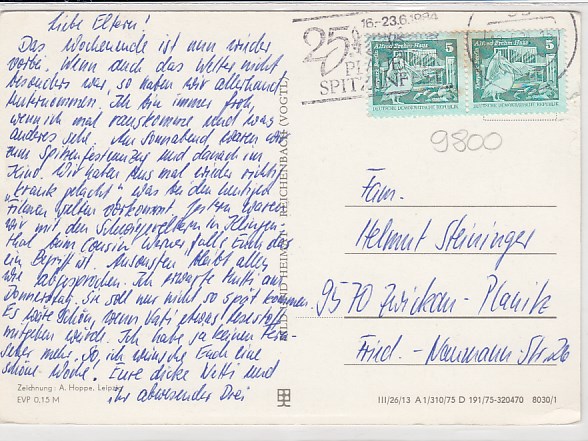 Liebe Eltern!
Das Wochenende ist nun wieder
vorbei. Wenn auch das Wetter nicht
besonders war, so haben wir allerhand
unternommen. Ich bin immer froh,
wenn ich mal rauskomme und was
anderes sehe. Am Sonnabend waren wir
zum Spitzenfestumzug und danach im
Kino. Wir haben uns mal wieder richtig
"krank gelacht" was bei den heutigen
Filmen selten vorkommt. Gestern waren
wir mit den Schwiegereltern in
thal beim Cousin Werner falls Euch das
ein Begriff ist. Ansonsten bleibt alles
wie abgesprochen. Ich erwarte Mutti am
Donnerstag. Sie soll nur nicht so spät kommen.
Es wäre schön, wenn Vati etwas Lesestoff
mitgeben würde. Ich habe ja keinen Fern-
seher mehr. So, ich wünsche Euch eine
schöne Woche! Eure dicke und
ihr abwesender Drei
Zeichnung: A. Hoppe, Leipzig
EVP 0,15 M
BILD UND HEIMAT · REICHENBACH (VOGTL)
16.-23.6.1984
25
SPITZ
Alfred Brehm Haus 5
DEUTSCHE DEMOKRATISCHE REPUBLIK
Alfred Brehm Haus 5
DEUTSCHE DEMOKRATISCHE REPUBLIK
9800
Fam.
Helmut Steininger
9570 Zwickau-Planitz
Fried.-Naumann Str. 26
III/26/13 A 1/310/75 D 191/75-320470 8030/1